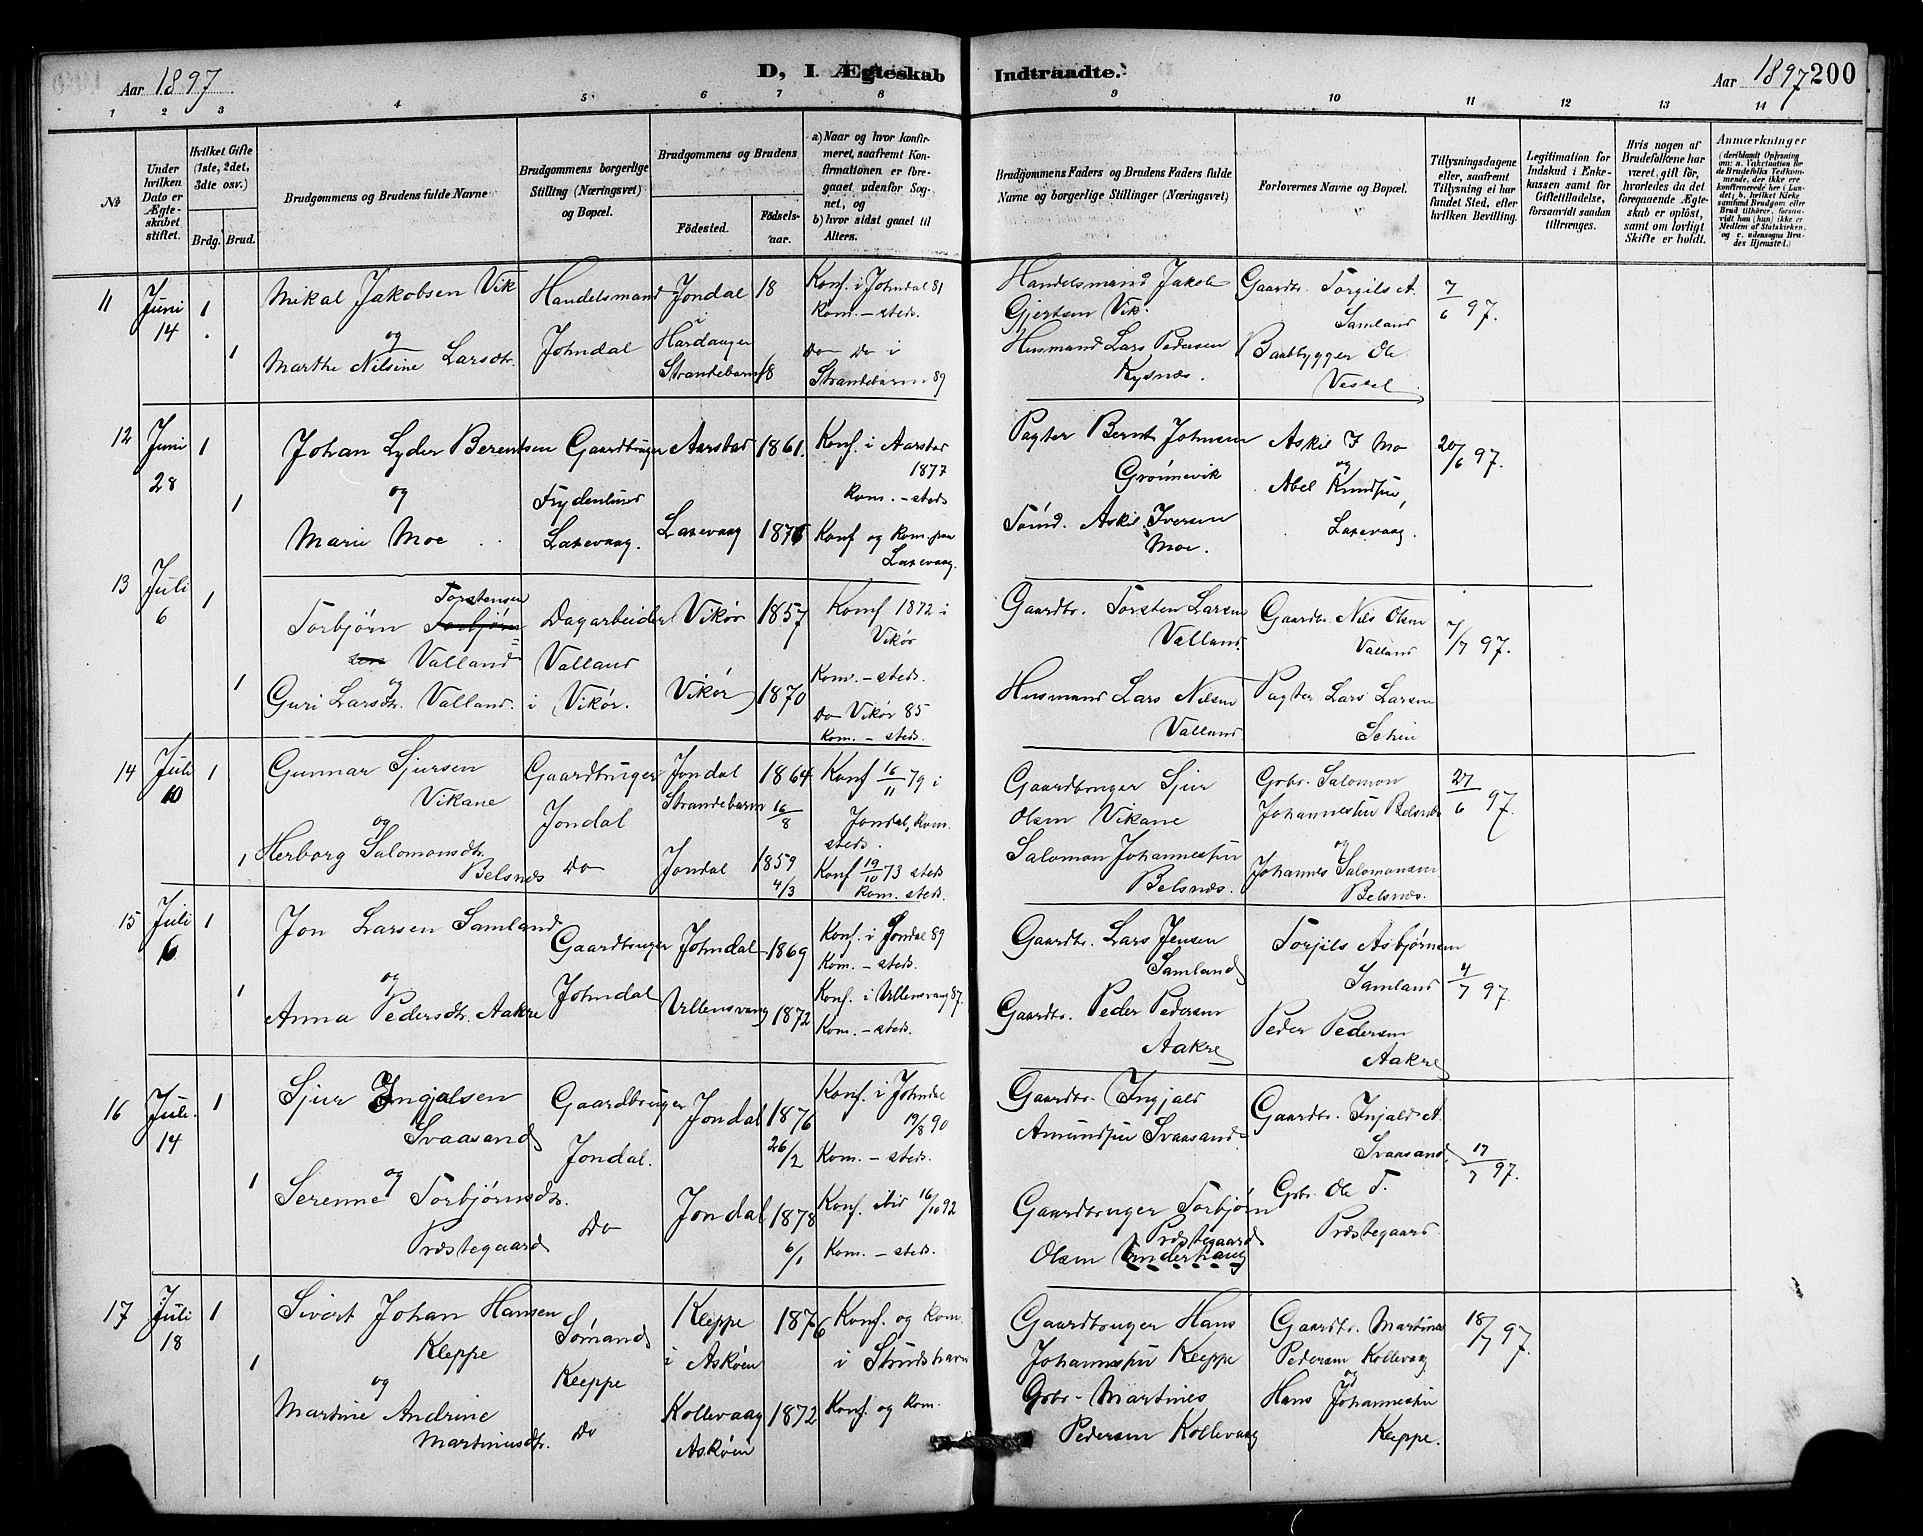 Aar 1897
D, I. Ægteskab
Indtraadte.
Aar 1897 200
1 2 3 4 5 6 7 8 9 10 11 12 13 14
No
Under hvilken Dato er Ægteskabet stiftet.
Hvilket Gifte (1ste, 2det, 3die osv.)
Brdg. Brud.
Brudgommens og Brudens fulde Navne
Brudgommens borgerlige Stilling (Næringsvei) og Bopæl.
Brudgommens og Brudens
Fødested.
Fødselsaar.
a) Naar og hvor konfirmeret, saafremt Konfirmationen er foregaaet udenfor Sognet, og
b) hvor sidst gaaet til Alters.
Brudgommens Faders og Brudens Faders fulde Navne og borgerlige Stillinger (Næringsvei)
Forlovernes Navne og Bopæl.
Tillysningsdagene eller, saafremt Tillysning ei har fundet Sted, efter hvilken Bevilling.
Legitimation for Indskud i Enkekassen samt for Giftetilladelse, forsaavidt saadan tiltrænges.
Hvis nogen af Brudefolkene har været gift før, hvorledes da det foregaaende Ægteskab er opløst, samt om lovligt Skifte er holdt.
Anmærkninger
(deriblandt Oplysning om: a. Vaksination for de Brudefolks Vedkommende, der ikke ere konfirmerede her i Landet; b. hvilket Kirkesamfund Brudgom eller Brud tilhører, forsaavidt han (hun) ikke er Medlem af Statskirken, og c. udensogns Brudes Hjemsted.)
11 Juni 14 1 1
Mikal Jakobsen Vik
og
Marthe Nilsine Larsdtr.
Handelsmand
Johndal
Jondal i Hardanger 18
Strandebarm 18
Konf. i Johndal 81
Kom. - steds.
Do Do i
Strandebarm 89
Handelsmand Jakob
Gjertsen Vik.
Husmand Lars Pedersen
Kysnæs.
Gaardbr. Torgils A.
Samland
Baadbygger Ole
Vessel
7/6 97.
12 Juni 28 1 1
Johan Lyder Berentsen
og
Marie Moe
Gaardbruger
Frydenlund
Laxevaag.
Aarstad 1861.
Laxevaag 1876
Konf. i Aarstad
1877
Kom. - steds
Konf og Kom. paa
Laxevaag.
Pagter Bernt Johnsen
Grønnevik
Tømd. Askil Iversen
Moe.
Askil I Mo
og
Abel Knudsen,
Laxevaag.
20/6 97.
13 Juli 6 1 1
Torstensen
Torbjørn Torbjørnsen
Valland
og
Guri Larsdtr. Valland.
Dagarbeider
Valland
i Vikør.
Vikør 1857
Vikør 1870
Konf 1872 i
Vikør
Kom. - steds.
Do Vikør 85
Kom. - steds.
Gaardbr. Torsten Larsen
Valland.
Husmand Lars Nilsen
Valland
Gaardbr. Nils Olsen
Valland
Pagter Lars Larsen
4/7 97.
14 Juli 10 1 1
Gunnar Sjursen
Vikane
og
Herborg Salomonsdtr.
Belsnæs
Gaardbruger
Jondal
Do
Jondal
Strandebarm
1864 16/8
Jondal 1859 4/3
Konf 16/11 79 i
Jondal, Kom.
steds.
Konf 19/10 73 steds
Kom. steds.
Gaardbruger Sjur
Olsen Vikane
Salomon Johannessen
Belsnæs.
Grbr. Salomon
Johannessen Belsnæs
og
Johannes Salomonsen
Belsnæs.
27/6 97.
15 Juli 6 1 1
Jon Larsen Samland
og
Anna Pedersdtr. Aakre
Gaardbruger
Johndal
Johndal 1869
Ullensvang 1872
Konf. i Jondal 89
Kom. - steds
Konf. i Ullensvang 87.
Kom. - steds.
Gaardbr. Lars Jensen
Samland
Gaardbr. Peder Pedersen
Aakre
Torjils Asbjørnsen
Samland
Peder Pedersen
Aakre
4/7 97.
16 Juli. 14 1 1
Sjur Ingjalsen
Svaasand
og
Serenne Torbjørnsdtr.
Præstegaard
Gaardbruger
Jondal.
Do
Jondal 1876 26/2
Jondal 1878 6/1
Konf. i Johndal
19/8 90
Kom. - steds.
Konf. ibid 16/10 92
Kom. - steds.
Gaardbr. Ingjald
Amundsen Svaasand
Gaardbruger Torbjørn
Præstegaard
Olsen Underhaug
Gaardbr. Injald A.
Svaasand.
Grbr. Ole T.
Præstegaard
17/7 97.
17 Juli 18 1 1
Sivert Johan Hansen
Kleppe
og
Martine Andrine
Martinusdtr.
Sømand
Kleppe
Do
Kleppe
i Askøen
1876
Kollevaag 1872
Askøen
Konf. og Kom.
i Strudshavn
Konf. og Kom.
Gaardbruger Hans
Johannessen Kleppe
Grbr. Martines
Pedersen Kollevaag
Gaardbr. Martines
Pedersen Kollevaag
og
Hans Johannessen
Kleppe.
18/7 97.